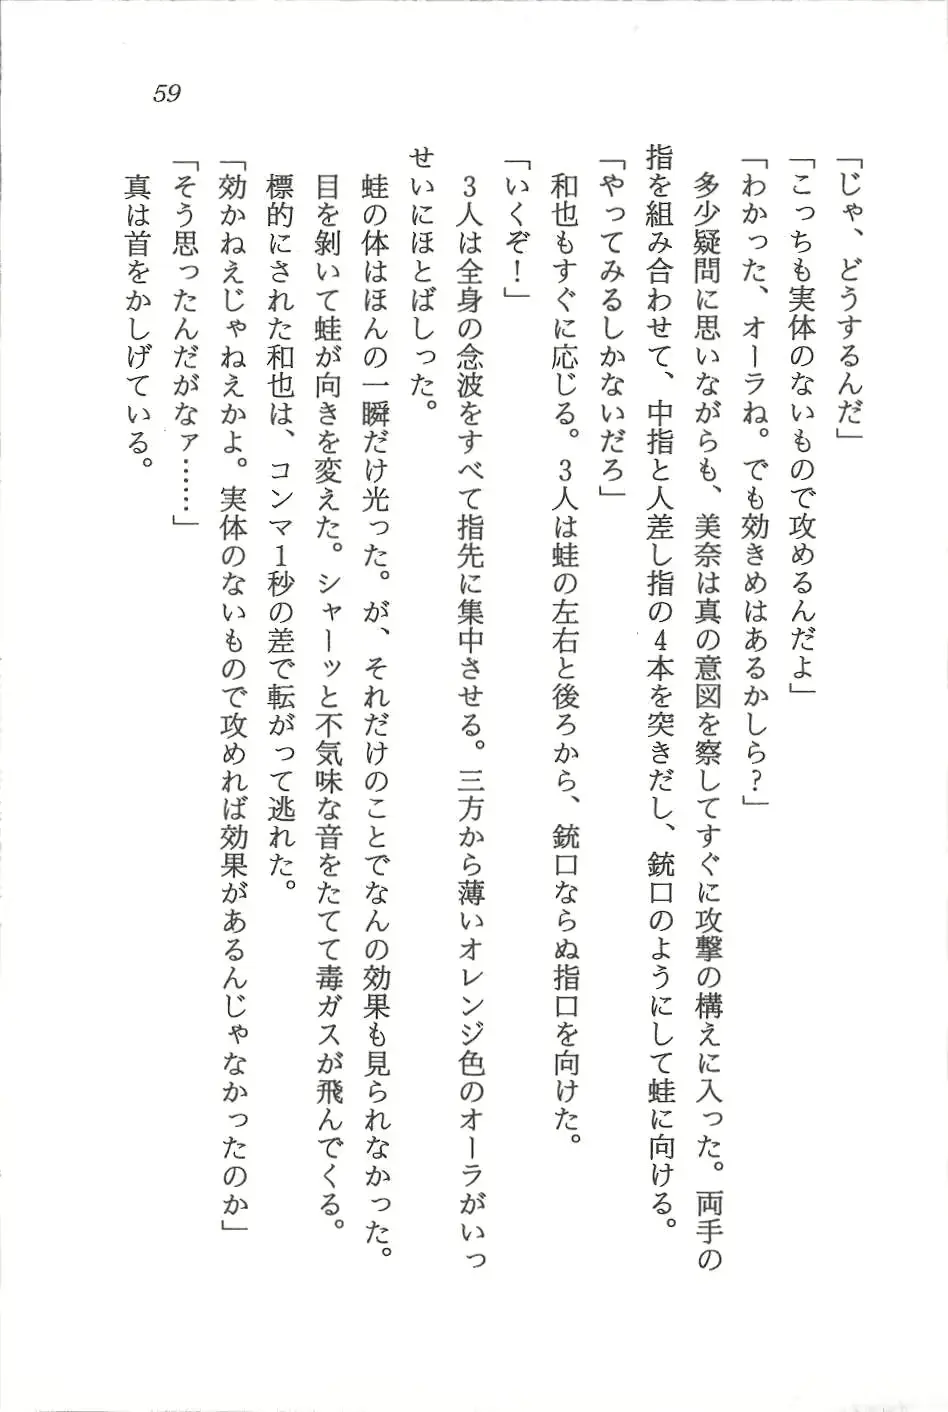 59
「じゃ、どうするんだ」
「こっちも実体のないもので攻めるんだよ」
「わかった、オーラね。でも効きめはあるかしら?」
　多少疑問に思いながらも、美奈は真の意図を察してすぐに攻撃の構えに入った。両手の
指を組み合わせて、中指と人差し指の4本を突きだし、銃口のようにして蛙に向ける。
「やってみるしかないだろ」
　和也もすぐに応じる。3人は蛙の左右と後ろから、銃口ならぬ指口を向けた。
「いくぞ!」
　3人は全身の念波をすべて指先に集中させる。三方から薄いオレンジ色のオーラがいっ
せいにほとばしった。
　蛙の体はほんの一瞬だけ光った。が、それだけのことでなんの効果も見られなかった。
　目を剝いて蛙が向きを変えた。シャーッと不気味な音をたてて毒ガスが飛んでくる。
　標的にされた和也は、コンマ1秒の差で転がって逃れた。
「効かねえじゃねえかよ。実体のないもので攻めれば効果があるんじゃなかったのか」
「そう思ったんだがなァ……」
　真は首をかしげている。